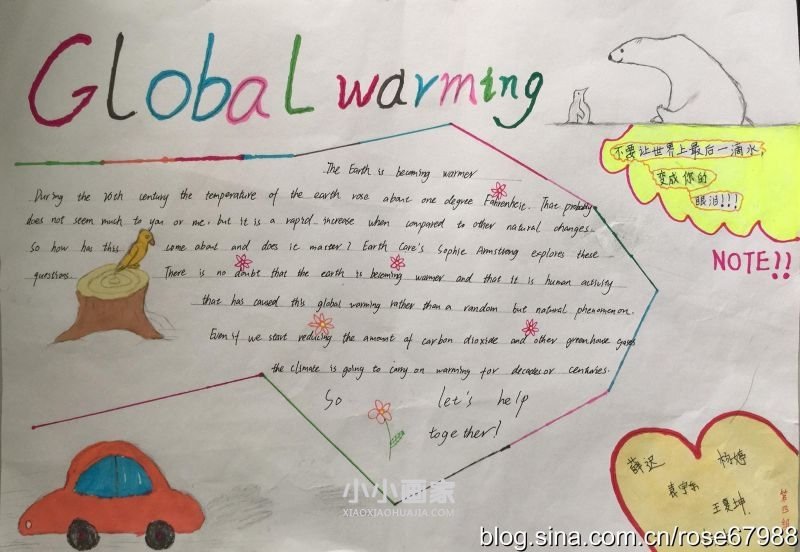 Global warming
The Earth is becoming warmer
During the 20th century the temperature of the earth rose about one degree Fahrenheit. That probably
does not seem much to you or me, but it is a rapid increase when compared to other natural changes.
So how has this come about and does it matter? Earth Care's Sophie Armstrong explores these
questions. There is no doubt that the earth is becoming warmer and that it is human activity
that has caused this global warming rather than a random but natural phenomenon.
Even if we start reducing the amount of carbon dioxide and other greenhouse gases
the climate is going to carry on warming for decades or centuries.
So let's help
together!
不要让世界上最后一滴水,
变成你的
眼泪!!!
NOTE!!
薛迟 杨婷
王夏坤
小小画家
XIAOXIAOHUAJIA.COM
blog.sina.com.cn/rose67988